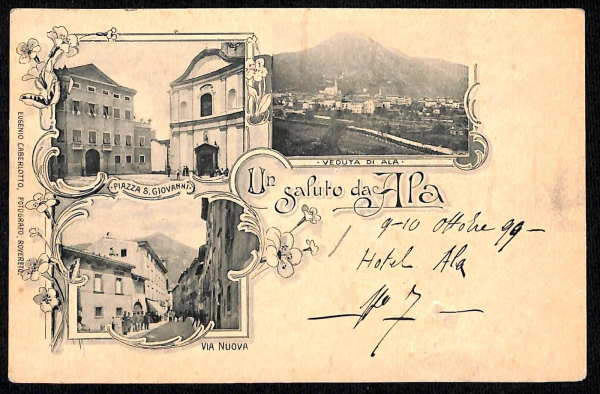 PIAZZA S. GIOVANNI
VEDUTA DI ALA
Un saluto da Ala
9-10 Ottobre 99-
Hotel Ala
No 7
VIA NUOVA
EUGENIO CABERLOTTO, FOTOGRAFO, ROVERETO.